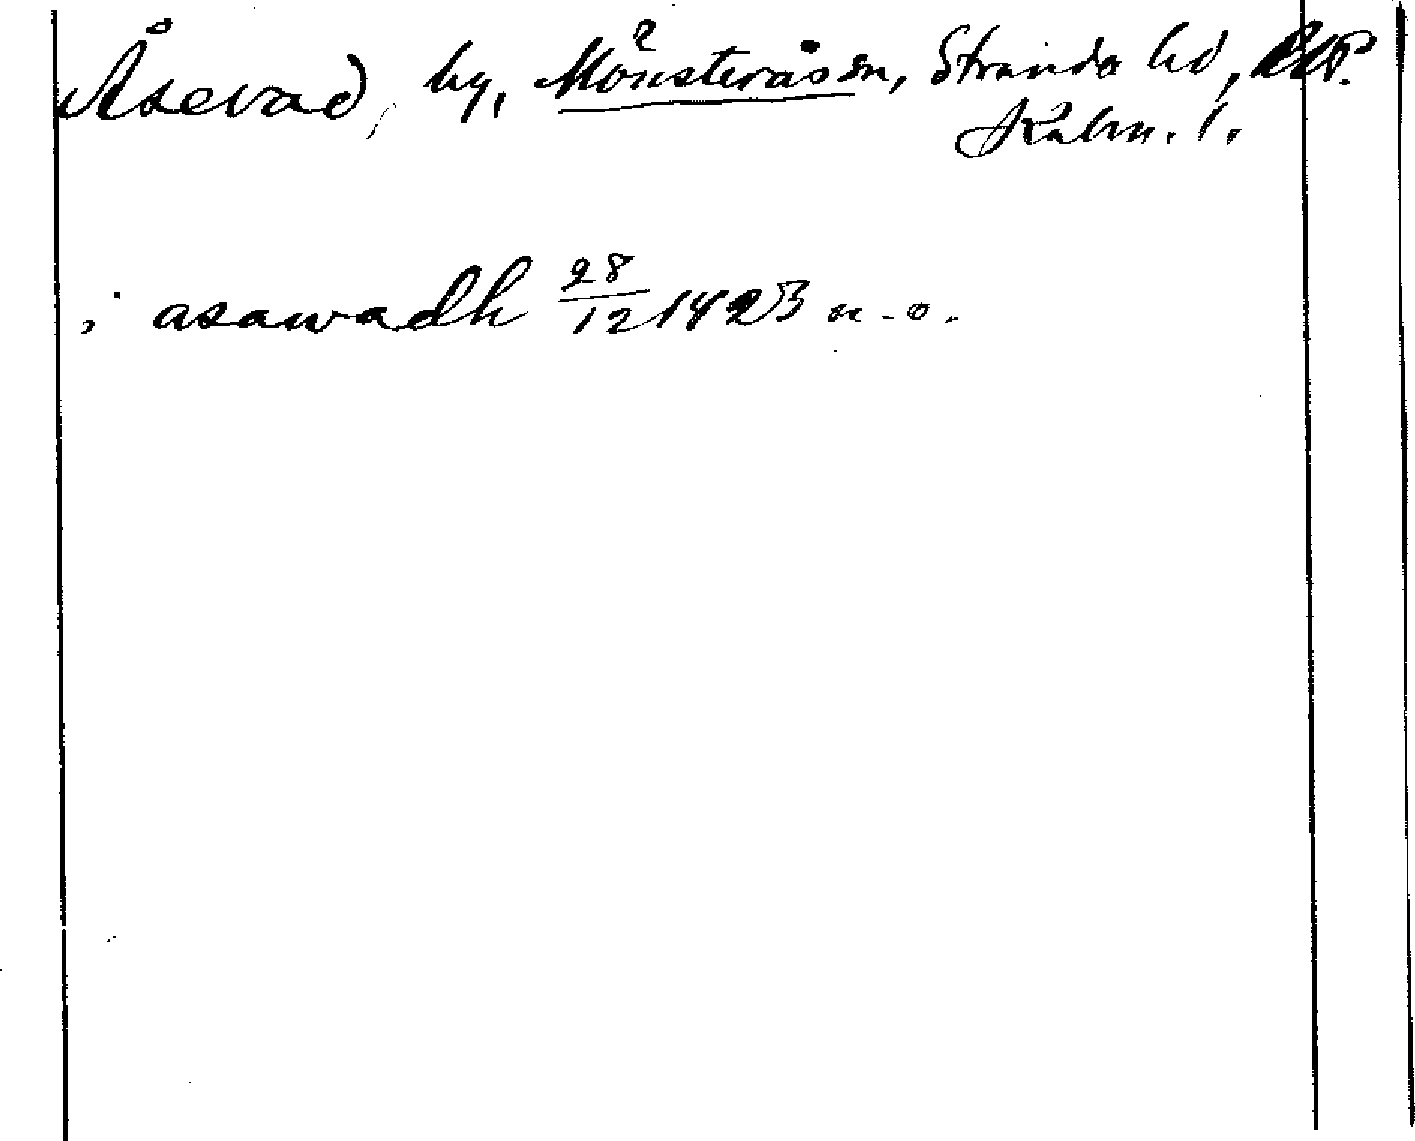 Åsevad, by, Mönsterås sn, Stranda hd,
Kalm. l.
i asawadh 28/12 1423 n. o.